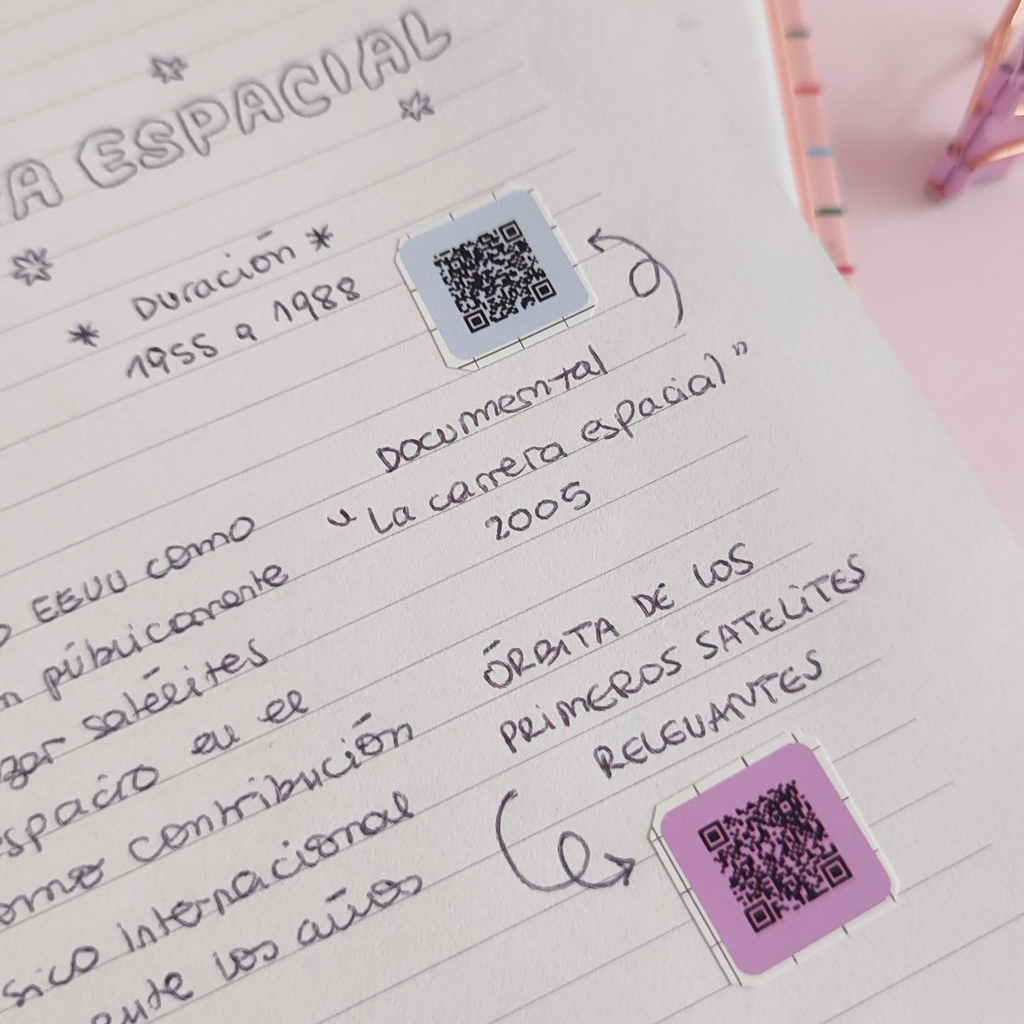 A ESPACIAL
* Duración *
1955 a 1988
Documental
"La carrera espacial"
2005
EEUU como
públicamente
satélites
espacio en el
contribución
internacional
los años
ÓRBITA DE LOS
PRIMEROS SATELITES
RELEVANTES